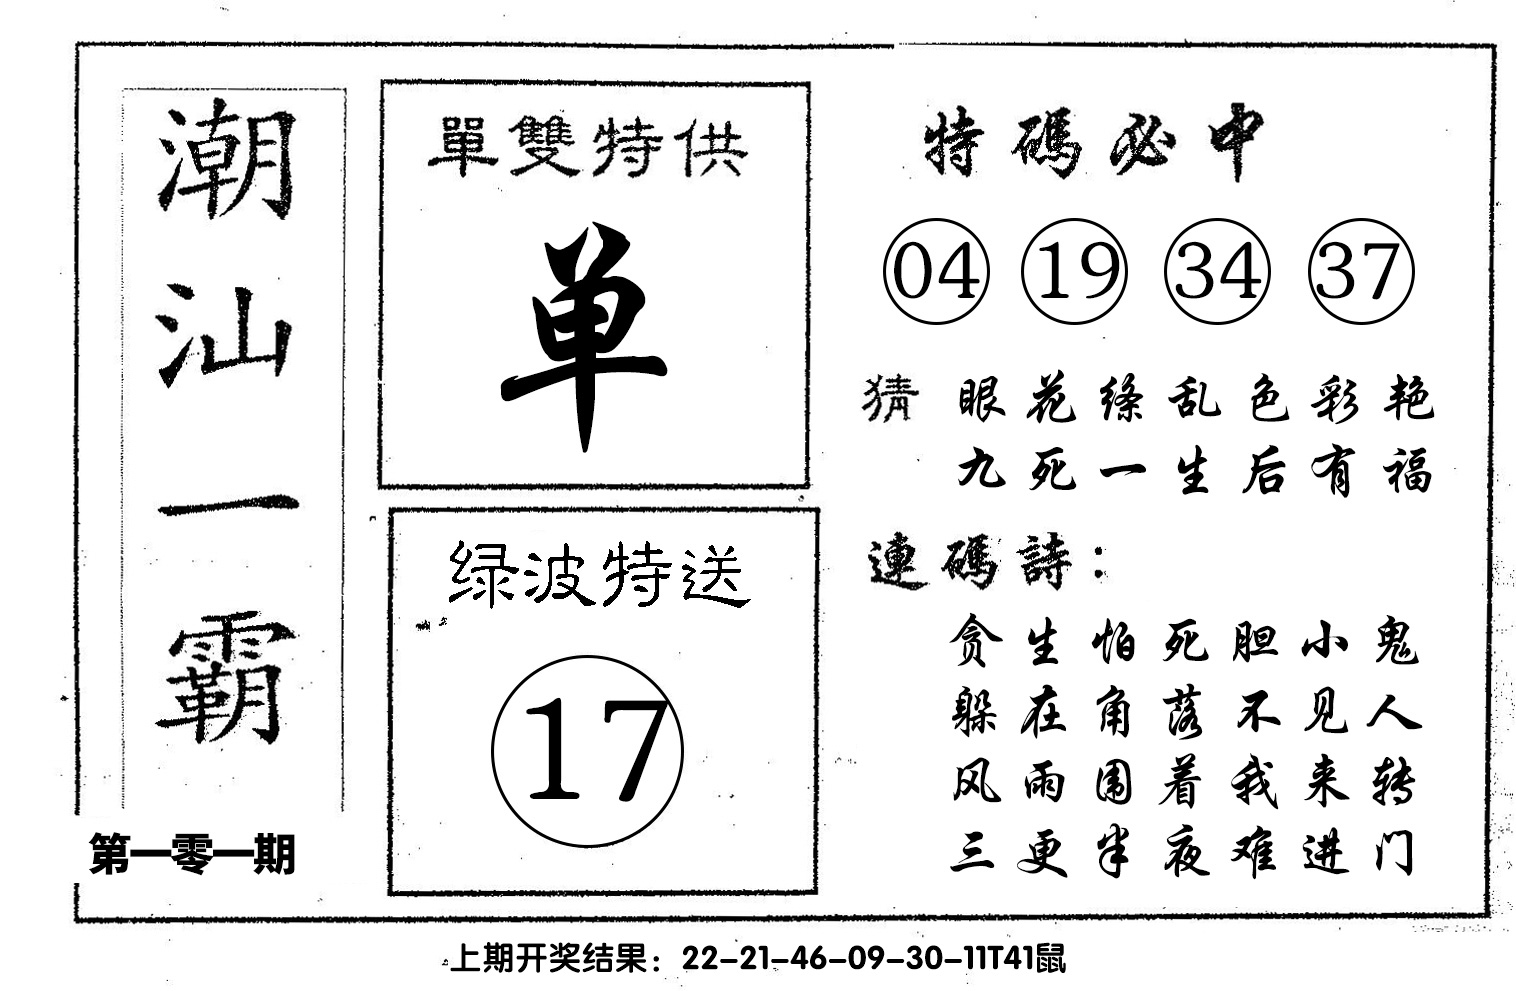 潮汕一霸
第一零一期
單雙特供
单
绿波特送
17
特碼必中
04 19 34 37
猜 眼花绦乱色彩艳
九死一生后有福
連碼詩：
贪生怕死胆小鬼
躲在角落不见人
风雨围着我来转
三更半夜难进门
上期开奖结果：22-21-46-09-30-11T41鼠